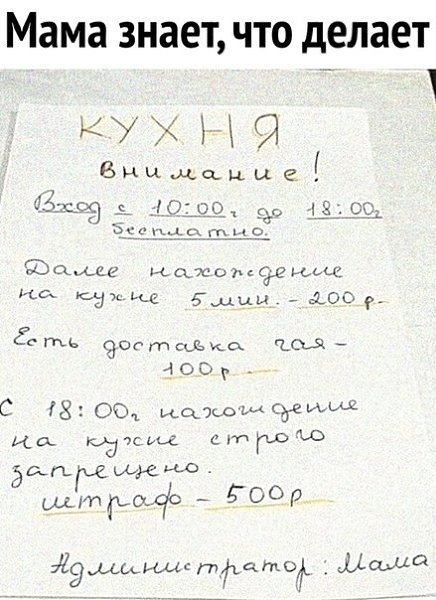 Мама знает, что делает
КУХНЯ
Внимание!
Вход с 10:00ч до 18:00ч
бесплатно.
Далее нахождение
на кухне 5 мин. - 200 р.
Есть доставка чая -
100 р.
С 18:00ч нахождение
на кухне строго
запрещено.
штраф - 500 р
Администратор: Мама